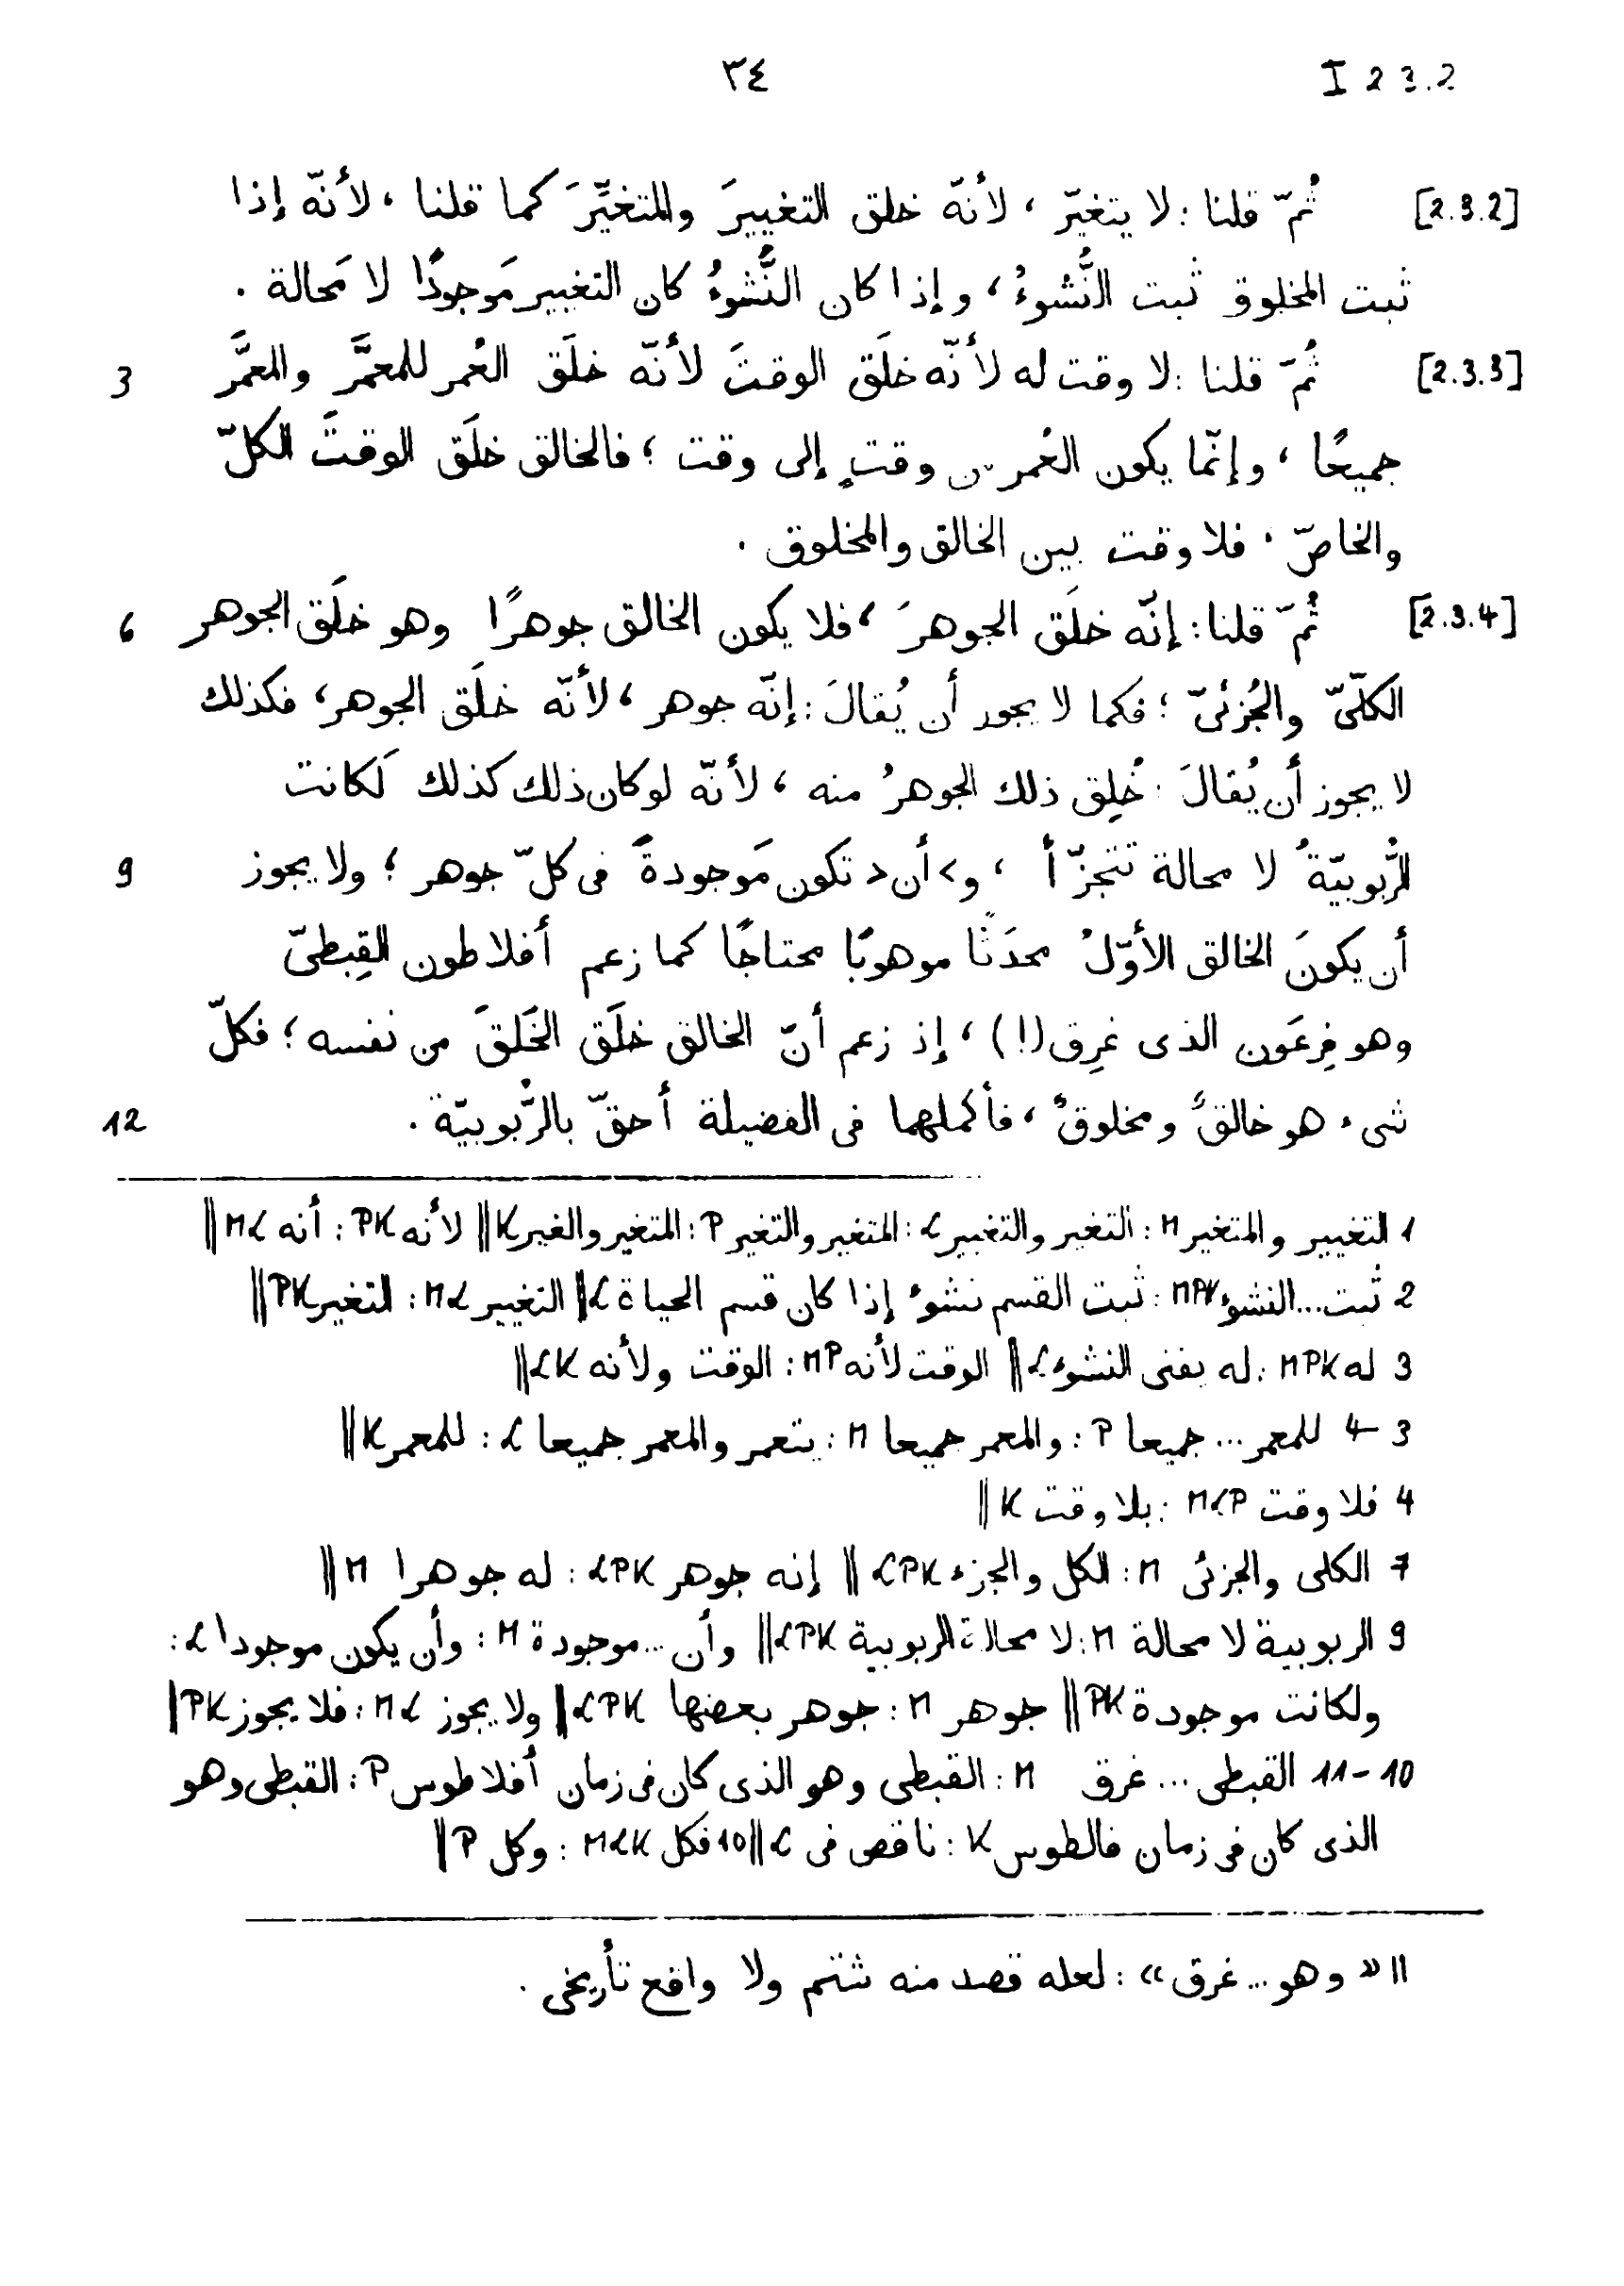 ٣٤ I 2 3.2
[2.3.2] ثُمّ قلنا : لا يتغيّر ، لأنّه خلق التغييرَ والمتغيِّرَ كما قلنا ، لأنّه إذا
ثبت المخلوق ثبت النُّشوءُ ، وإذا كان النُّشوءُ كان التغيير مَوجودًا لا مَحالة .
[2.3.3] ثُمّ قلنا : لا وقت له لأنّه خلَق الوقتَ لأنّه خلَق العُمر للمعمَّر والمعمَّر 3
جميعًا ، وإنّما يكون العُمر من وقتٍ إلى وقت ؛ فالخالق خلَق الوقتَ الكلّ
والخاصّ ، فلا وقت بين الخالق والمخلوق .
[2.3.4] ثُمّ قلنا : إنّه خلَق الجوهرَ ، فلا يكون الخالق جوهرًا وهو خلَق الجوهر 6
الكلّىّ والجُزئىّ ؛ فكما لا يجوز أن يُقالَ : إنّه جوهر ، لأنّه خلَق الجوهر ، فكذلك
لا يجوز أن يُقالَ : خُلِق ذلك الجوهرُ منه ، لأنّه لو كان ذلك كذلك لَكانت
الرُّبوبيّةُ لا محالة تتجزّأ ، و>أن< تكون مَوجودةً فى كلّ جوهر ؛ ولا يجوز 9
أن يكونَ الخالق الأوّلُ محدَثًا موهوبًا محتاجًا كما زعم أفلاطون القِبطىّ
وهو فِرعَون الذى غرِق (!) ، إذ زعم أنّ الخالق خلَق الخَلقَ من نفسه ؛ فكلّ
شىء هو خالقٌ ومخلوقٌ ، فأكملهما فى الفضيلة أحقّ بالرُّبوبيّة . 12
1 التغيير والمتغير M : التغير والتغيير L : المتغير والتغير P : المتغير والغير K || لأنه PK : أنه ML ||
2 ثبت...النشوء MPK : ثبت القسم نشوء إذا كان قسم الحياة L || التغيير ML : التغير PK ||
3 له MPK : له يفنى النشوء L || الوقت لأنه MP : الوقت ولأنه LK ||
3–4 للمعمر...جميعا P : والمعمر جميعا M : يتعمر والمعمر جميعا L : للمعمر K ||
4 فلا وقت MLP : بلا وقت K ||
7 الكلى والجزئى M : الكل والجزء LPK || إنه جوهر LPK : له جوهرا M ||
9 الربوبية لا محالة M : لا محالة الربوبية LPK || وأن...موجودة M : وأن يكون موجودا L :
ولكانت موجودة PK || جوهر M : جوهر بعضها LPK || ولا يجوز ML : فلا يجوز PK ||
10–11 القبطى...غرق M : القبطى وهو الذى كان فى زمان أفلاطوس P : القبطى وهو
الذى كان فى زمان فالطوس K : ناقص فى L || 10 فكل MLK : وكل P ||
11 « وهو...غرق » : لعله قصد منه شتم ولا واقع تأريخى .